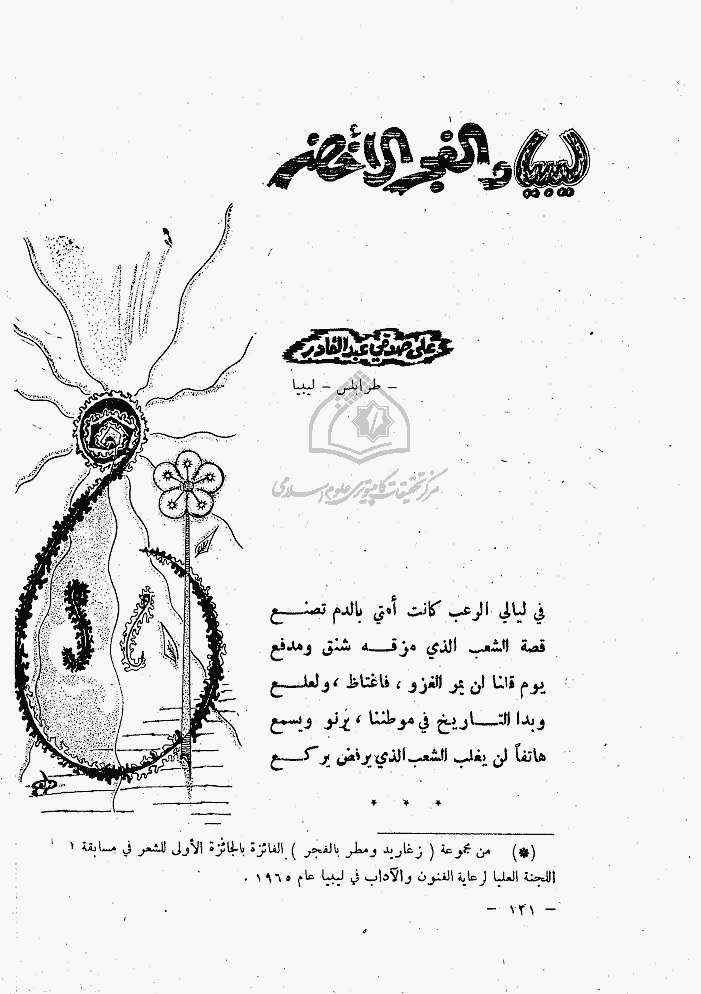 ليبيا والفجر الأخضر
علي صدقي عبد القادر
- طرابلس - ليبيا
مركز تحقيقات كامپيوتري علوم اسلامي
في ليالي الرعب كانت أمتي بالدم تصنـــع
قصة الشعب الذي مزقـــه شنق ومدفع
يوم قلنا لن يمر الغزو ، فاغتاظ ، ولعلـــع
وبدا التـــاريخ في موطننا ، يرنو ويسمع
هاتفاً لن يغلب الشعب الذي يرفض يركـــع
* * *
(*) من مجموعة ( زغاريد ومطر بالفجر ) الفائزة بالجائزة الأولى للشعر في مسابقة
اللجنة العليا لرعاية الفنون والآداب في ليبيا عام ١٩٦٥ .
- ١٢١ -